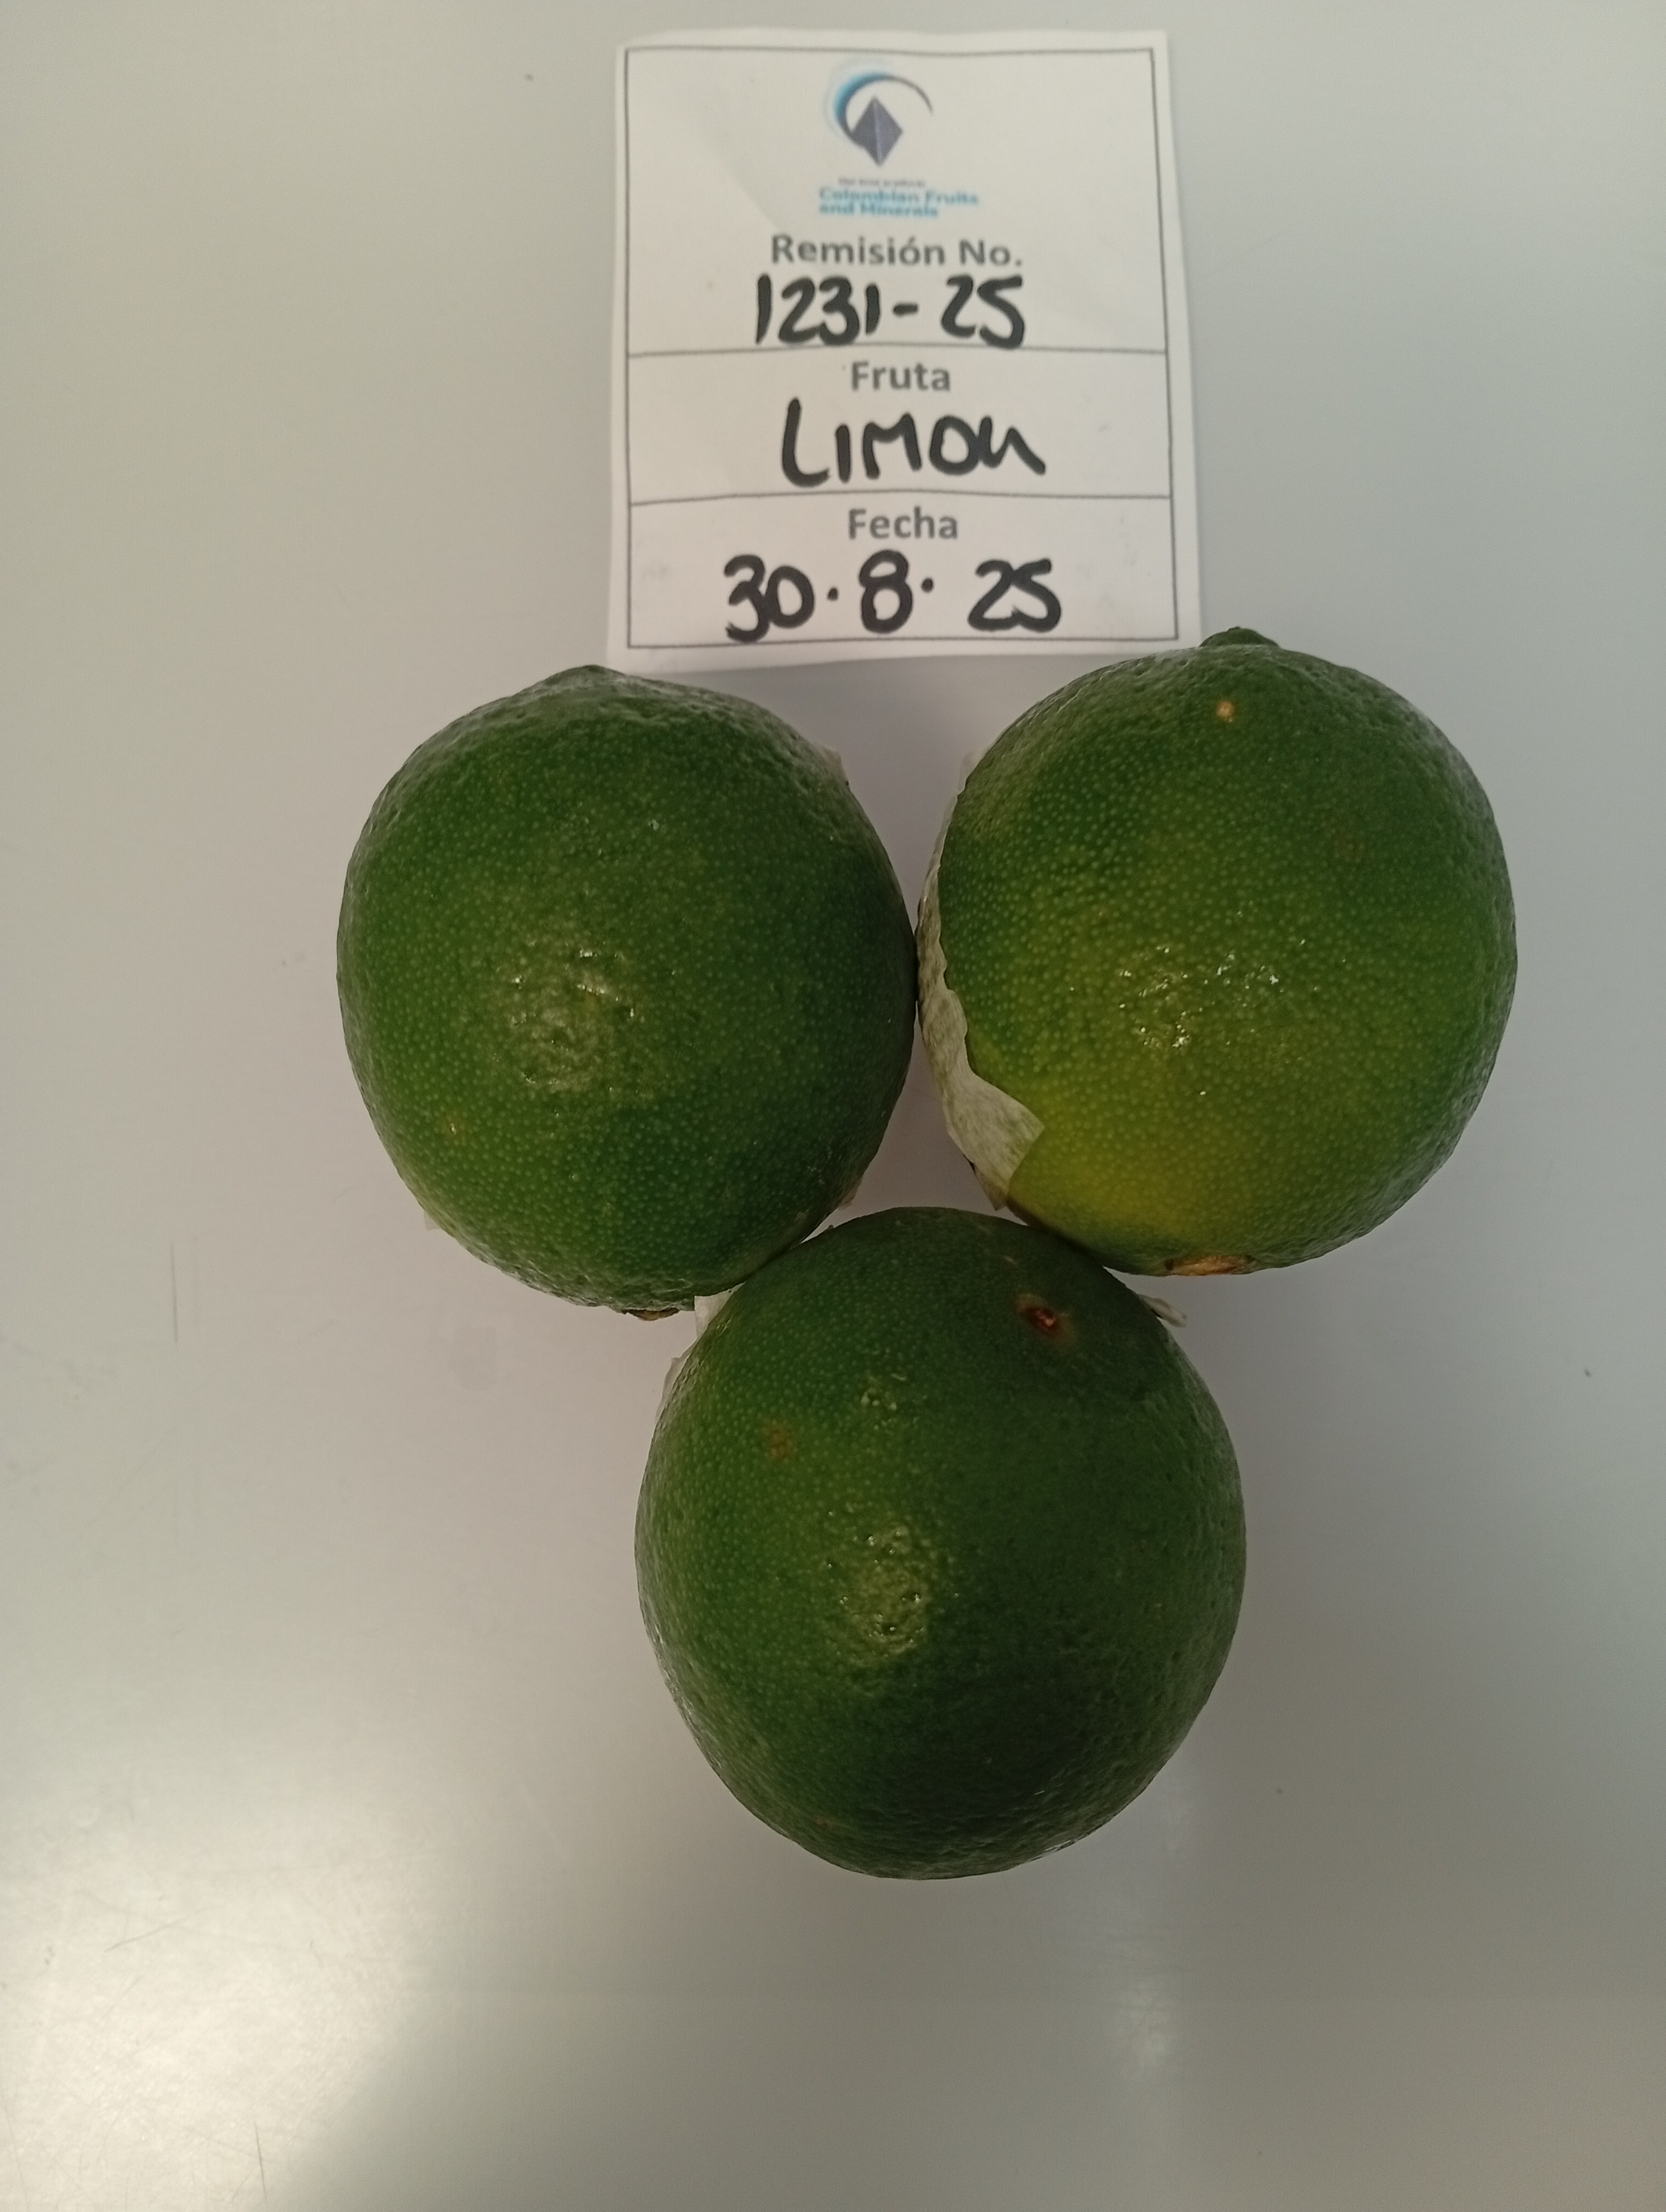 Colombian Fruits
and Minerals
Remisión No.
1231-25
Fruta
LIMON
Fecha
30.8.25